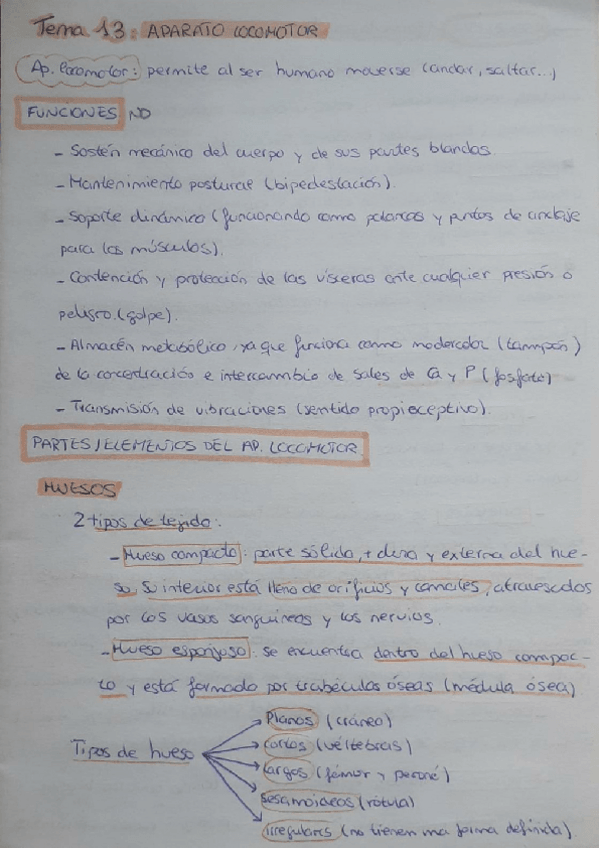 Tema 13: APARATO LOCOMOTOR
Ap. locomotor: permite al ser humano moverse (andar, saltar...)
FUNCIONES NO
- Sostén mecánico del cuerpo y de sus partes blandas.
- Mantenimiento postural (bipedestación).
- Soporte dinámico (funcionando como palancas y puntos de anclaje
para los músculos).
- Contención y protección de las vísceras ante cualquier presión o
peligro. (golpe).
- Almacén metabólico, ya que funciona como moderador (tampón)
de la concentración e intercambio de sales de Ca y P (fosfato)
- Transmisión de vibraciones (sentido propioceptivo).
PARTES/ELEMENTOS DEL AP. LOCOMOTOR.
HUESOS
2 tipos de tejido:
- Hueso compacto: parte sólida, + dura y externa del hue-
so. Su interior está lleno de orificios y canales, atravesados
por los vasos sanguíneos y los nervios.
- Hueso esponjoso: se encuentra dentro del hueso compac-
to y está formado por trabéculas óseas (médula ósea)
Tipos de hueso
Planos (cráneo)
Cortos (vértebras)
Largos (fémur y peroné)
Sesamoideos (rótula)
Irregulares (no tienen una forma definida).